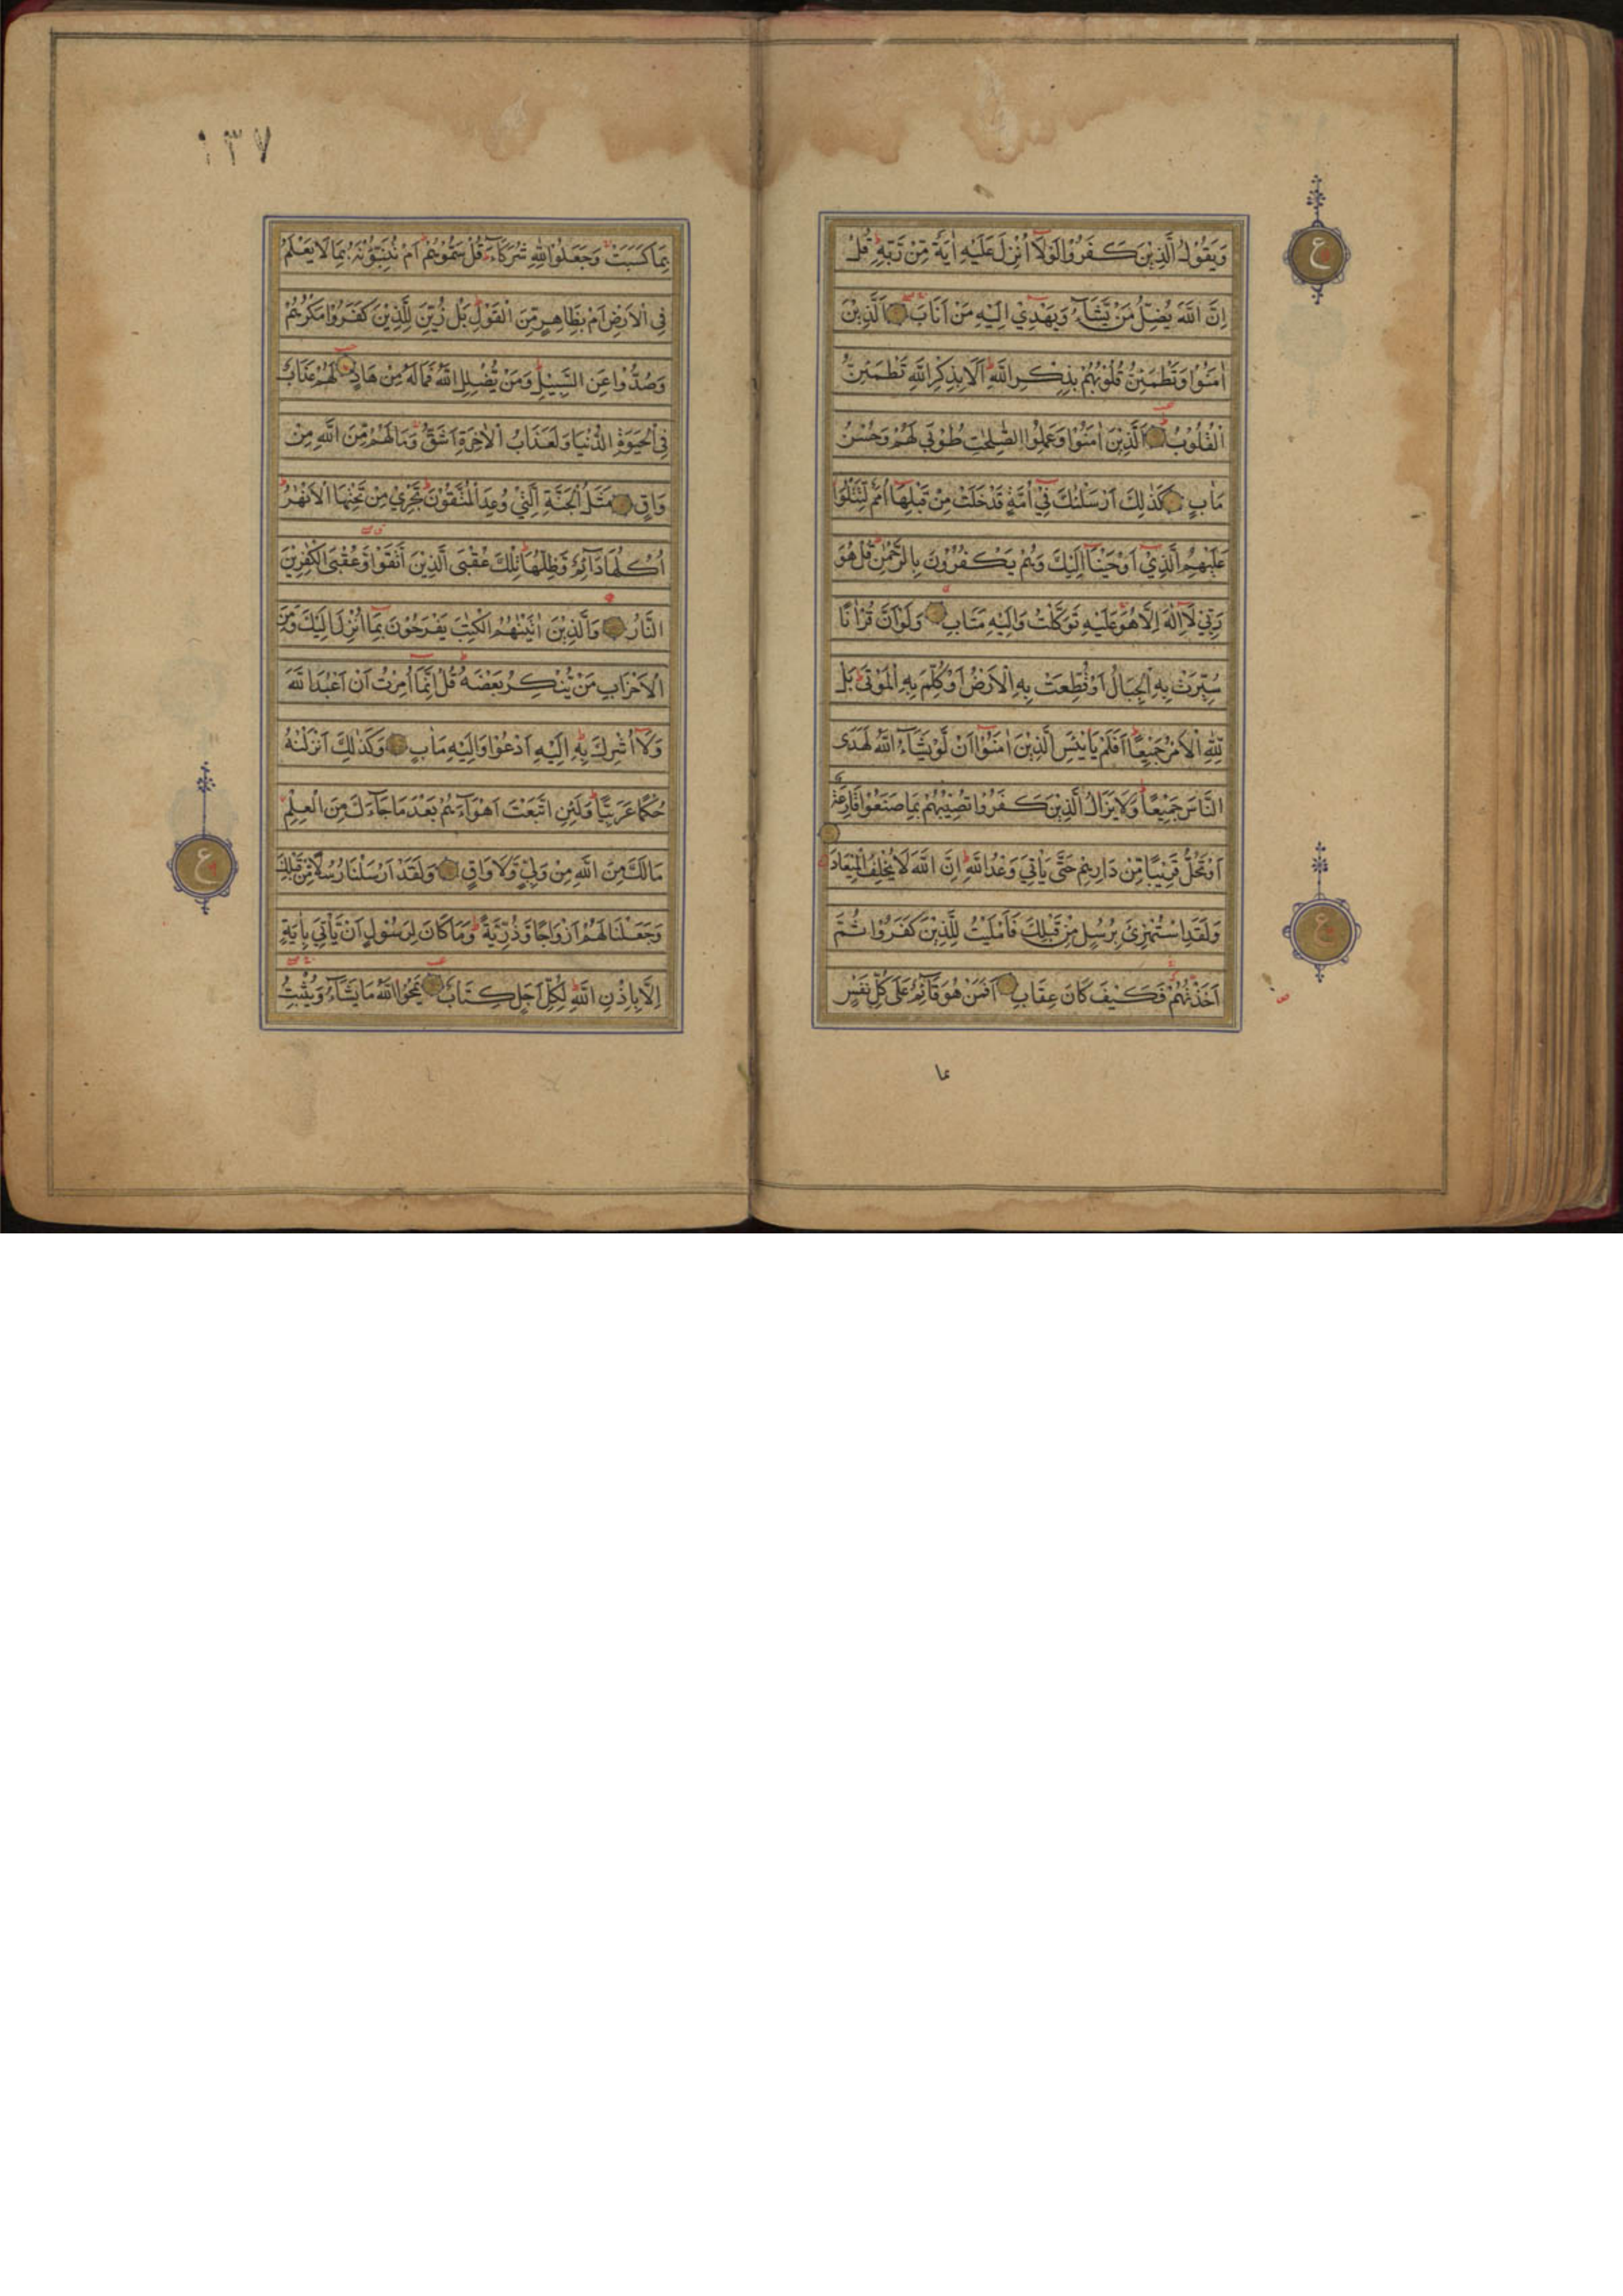 وَيَقُوْلُ الَّذِيْنَ كَفَرُوْا لَوْلَاۤ اُنْزِلَ عَلَيْهِ اٰيَةٌ مِّنْ رَّبِّهٖ قُلْ
اِنَّ اللّٰهَ يُضِلُّ مَنْ يَّشَاۤءُ وَيَهْدِيْ اِلَيْهِ مَنْ اَنَابَ اَلَّذِيْنَ
اٰمَنُوْا وَتَطْمَئِنُّ قُلُوْبُهُمْ بِذِكْرِ اللّٰهِ اَلَا بِذِكْرِ اللّٰهِ تَطْمَئِنُّ
الْقُلُوْبُ اَلَّذِيْنَ اٰمَنُوْا وَعَمِلُوا الصّٰلِحٰتِ طُوْبٰى لَهُمْ وَحُسْنُ
مَاٰبٍ كَذٰلِكَ اَرْسَلْنٰكَ فِيْۤ اُمَّةٍ قَدْ خَلَتْ مِنْ قَبْلِهَاۤ اُمَمٌ لِّتَتْلُوَا
عَلَيْهِمُ الَّذِيْۤ اَوْحَيْنَاۤ اِلَيْكَ وَهُمْ يَكْفُرُوْنَ بِالرَّحْمٰنِ قُلْ هُوَ
رَبِّيْ لَاۤ اِلٰهَ اِلَّا هُوَ عَلَيْهِ تَوَكَّلْتُ وَاِلَيْهِ مَتَابِ وَلَوْ اَنَّ قُرْاٰنًا
سُيِّرَتْ بِهِ الْجِبَالُ اَوْ قُطِّعَتْ بِهِ الْاَرْضُ اَوْ كُلِّمَ بِهِ الْمَوْتٰى بَلْ
لِّلّٰهِ الْاَمْرُ جَمِيْعًا اَفَلَمْ يَايْـَٔسِ الَّذِيْنَ اٰمَنُوْۤا اَنْ لَّوْ يَشَاۤءُ اللّٰهُ لَهَدَى
النَّاسَ جَمِيْعًا وَلَا يَزَالُ الَّذِيْنَ كَفَرُوْا تُصِيْبُهُمْ بِمَا صَنَعُوْا قَارِعَةٌ
اَوْ تَحُلُّ قَرِيْبًا مِّنْ دَارِهِمْ حَتّٰى يَاْتِيَ وَعْدُ اللّٰهِ اِنَّ اللّٰهَ لَا يُخْلِفُ الْمِيْعَادَ
وَلَقَدِ اسْتُهْزِئَ بِرُسُلٍ مِّنْ قَبْلِكَ فَاَمْلَيْتُ لِلَّذِيْنَ كَفَرُوْا ثُمَّ
اَخَذْتُهُمْ فَكَيْفَ كَانَ عِقَابِ اَفَمَنْ هُوَ قَاۤئِمٌ عَلٰى كُلِّ نَفْسٍ
بما
ع
ع
١٣٧
بِمَا كَسَبَتْ وَجَعَلُوْا لِلّٰهِ شُرَكَاۤءَ قُلْ سَمُّوْهُمْ اَمْ تُنَبِّـُٔوْنَهٗ بِمَا لَا يَعْلَمُ
فِى الْاَرْضِ اَمْ بِظَاهِرٍ مِّنَ الْقَوْلِ بَلْ زُيِّنَ لِلَّذِيْنَ كَفَرُوْا مَكْرُهُمْ
وَصُدُّوْا عَنِ السَّبِيْلِ وَمَنْ يُّضْلِلِ اللّٰهُ فَمَا لَهٗ مِنْ هَادٍ لَهُمْ عَذَابٌ
فِى الْحَيٰوةِ الدُّنْيَا وَلَعَذَابُ الْاٰخِرَةِ اَشَقُّ وَمَا لَهُمْ مِّنَ اللّٰهِ مِنْ
وَاقٍ مَثَلُ الْجَنَّةِ الَّتِيْ وُعِدَ الْمُتَّقُوْنَ تَجْرِيْ مِنْ تَحْتِهَا الْاَنْهٰرُ
اُكُلُهَا دَاۤئِمٌ وَّظِلُّهَا تِلْكَ عُقْبَى الَّذِيْنَ اتَّقَوْا وَّعُقْبَى الْكٰفِرِيْنَ
النَّارُ وَالَّذِيْنَ اٰتَيْنٰهُمُ الْكِتٰبَ يَفْرَحُوْنَ بِمَاۤ اُنْزِلَ اِلَيْكَ وَمِنَ
الْاَحْزَابِ مَنْ يُّنْكِرُ بَعْضَهٗ قُلْ اِنَّمَاۤ اُمِرْتُ اَنْ اَعْبُدَ اللّٰهَ
وَلَاۤ اُشْرِكَ بِهٖ اِلَيْهِ اَدْعُوْا وَاِلَيْهِ مَاٰبِ وَكَذٰلِكَ اَنْزَلْنٰهُ
حُكْمًا عَرَبِيًّا وَلَئِنِ اتَّبَعْتَ اَهْوَاۤءَهُمْ بَعْدَ مَا جَاۤءَكَ مِنَ الْعِلْمِ
مَالَكَ مِنَ اللّٰهِ مِنْ وَّلِيٍّ وَّلَا وَاقٍ وَلَقَدْ اَرْسَلْنَا رُسُلًا مِّنْ قَبْلِكَ
وَجَعَلْنَا لَهُمْ اَزْوَاجًا وَّذُرِّيَّةً وَمَا كَانَ لِرَسُوْلٍ اَنْ يَّاْتِيَ بِاٰيَةٍ
اِلَّا بِاِذْنِ اللّٰهِ لِكُلِّ اَجَلٍ كِتَابٌ يَمْحُوا اللّٰهُ مَا يَشَاۤءُ وَيُثْبِتُ
ع